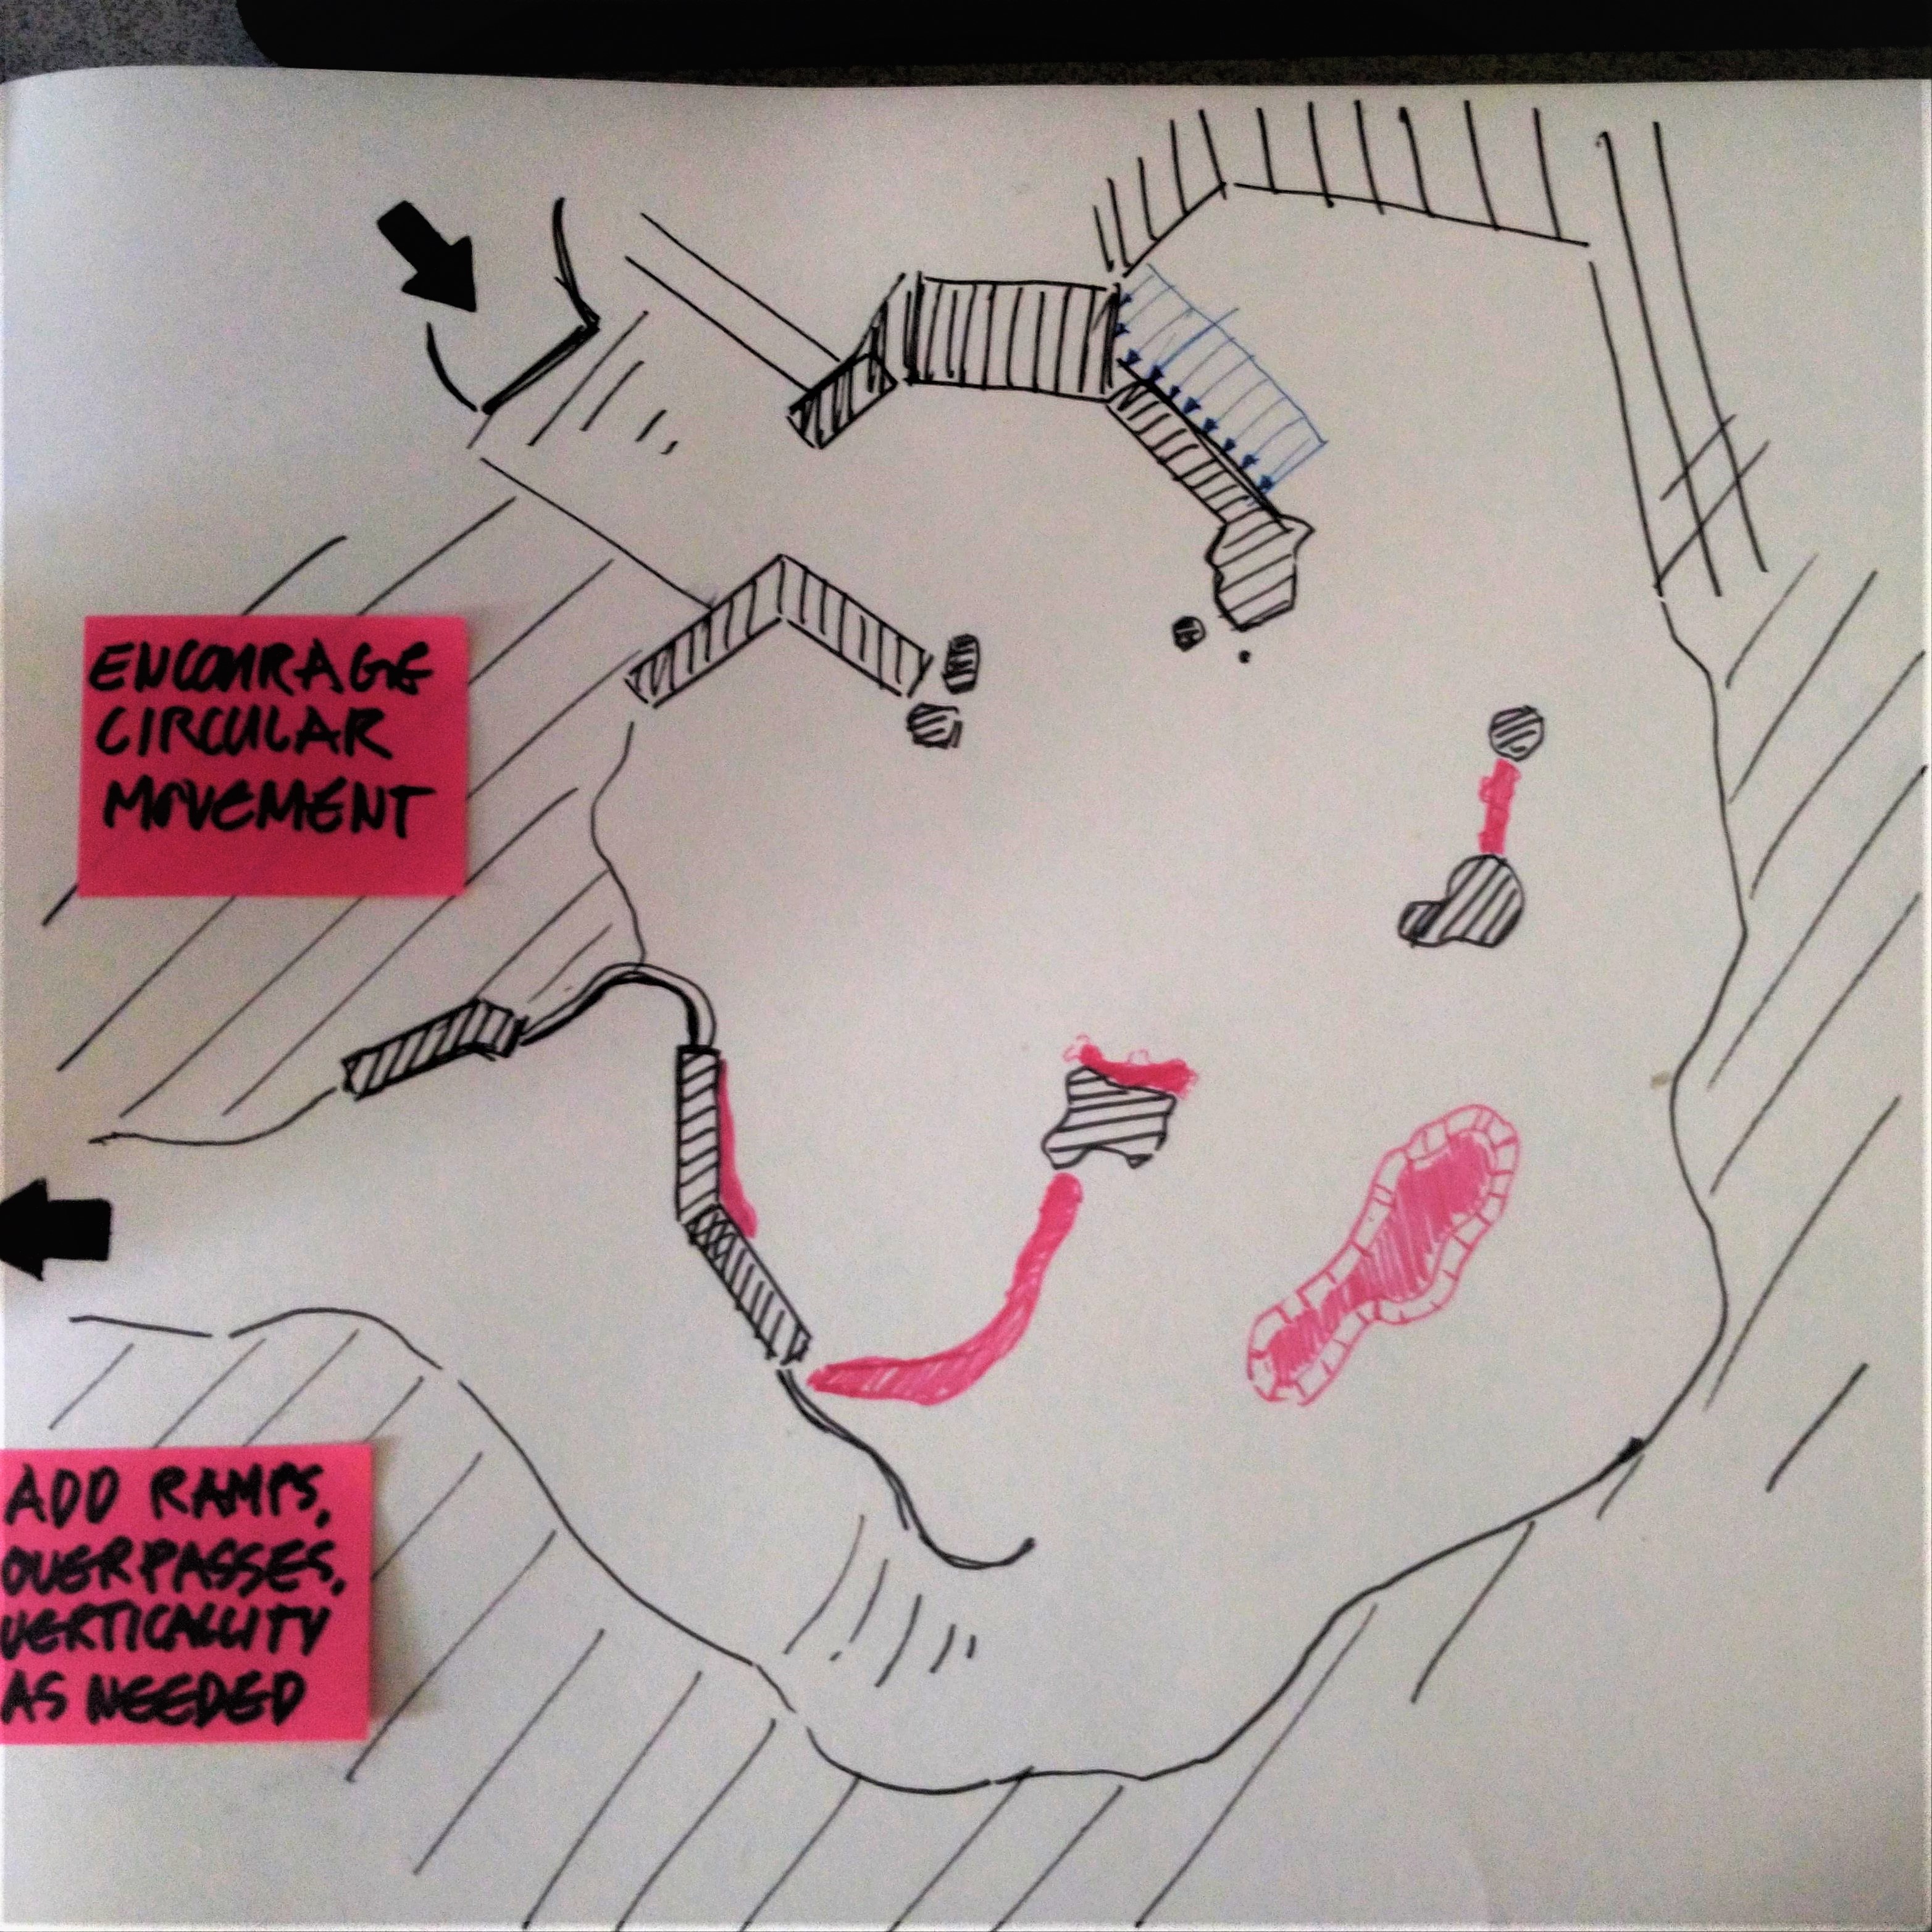 ENCOURAGE
CIRCULAR
MOVEMENT
ADD RAMPS,
OVERPASSES,
VERTICALLITY
AS NEEDED